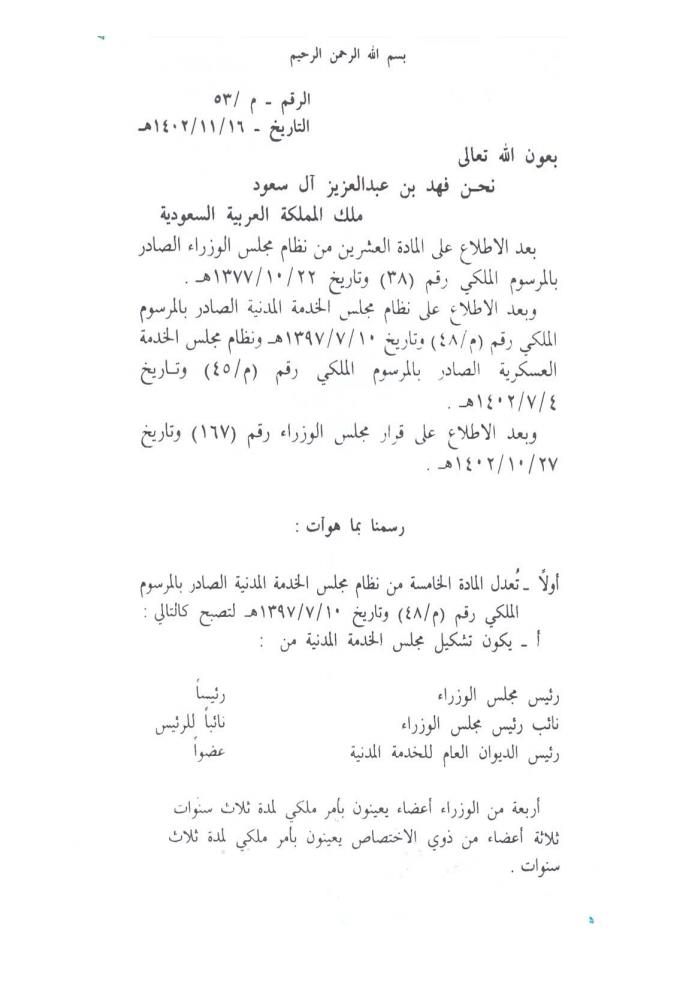 بسم الله الرحمن الرحيم
الرقم - م /٥٣
التاريخ - ١٤٠٢/١١/١٦هـ
بعون الله تعالى
نحن فهد بن عبدالعزيز آل سعود
ملك المملكة العربية السعودية
بعد الاطلاع على المادة العشرين من نظام مجلس الوزراء الصادر
بالمرسوم الملكي رقم (٣٨) وتاريخ ١٣٧٧/١٠/٢٢هـ .
وبعد الاطلاع على نظام مجلس الخدمة المدنية الصادر بالمرسوم
الملكي رقم (م/٤٨) وتاريخ ١٣٩٧/٧/١٠هـ ونظام مجلس الخدمة
العسكرية الصادر بالمرسوم الملكي رقم (م/٤٥) وتاريخ
١٤٠٢/٧/٤هـ .
وبعد الاطلاع على قرار مجلس الوزراء رقم (١٦٧) وتاريخ
١٤٠٢/١٠/٢٧هـ .
رسمنا بما هوآت :
أولاً ـ تُعدل المادة الخامسة من نظام مجلس الخدمة المدنية الصادر بالمرسوم
الملكي رقم (م/٤٨) وتاريخ ١٣٩٧/٧/١٠هـ لتصبح كالتالي :
أ ـ يكون تشكيل مجلس الخدمة المدنية من :
رئيس مجلس الوزراء رئيساً
نائب رئيس مجلس الوزراء نائباً للرئيس
رئيس الديوان العام للخدمة المدنية عضواً
أربعة من الوزراء أعضاء يعينون بأمر ملكي لمدة ثلاث سنوات
ثلاثة أعضاء من ذوي الاختصاص يعينون بأمر ملكي لمدة ثلاث
سنوات .